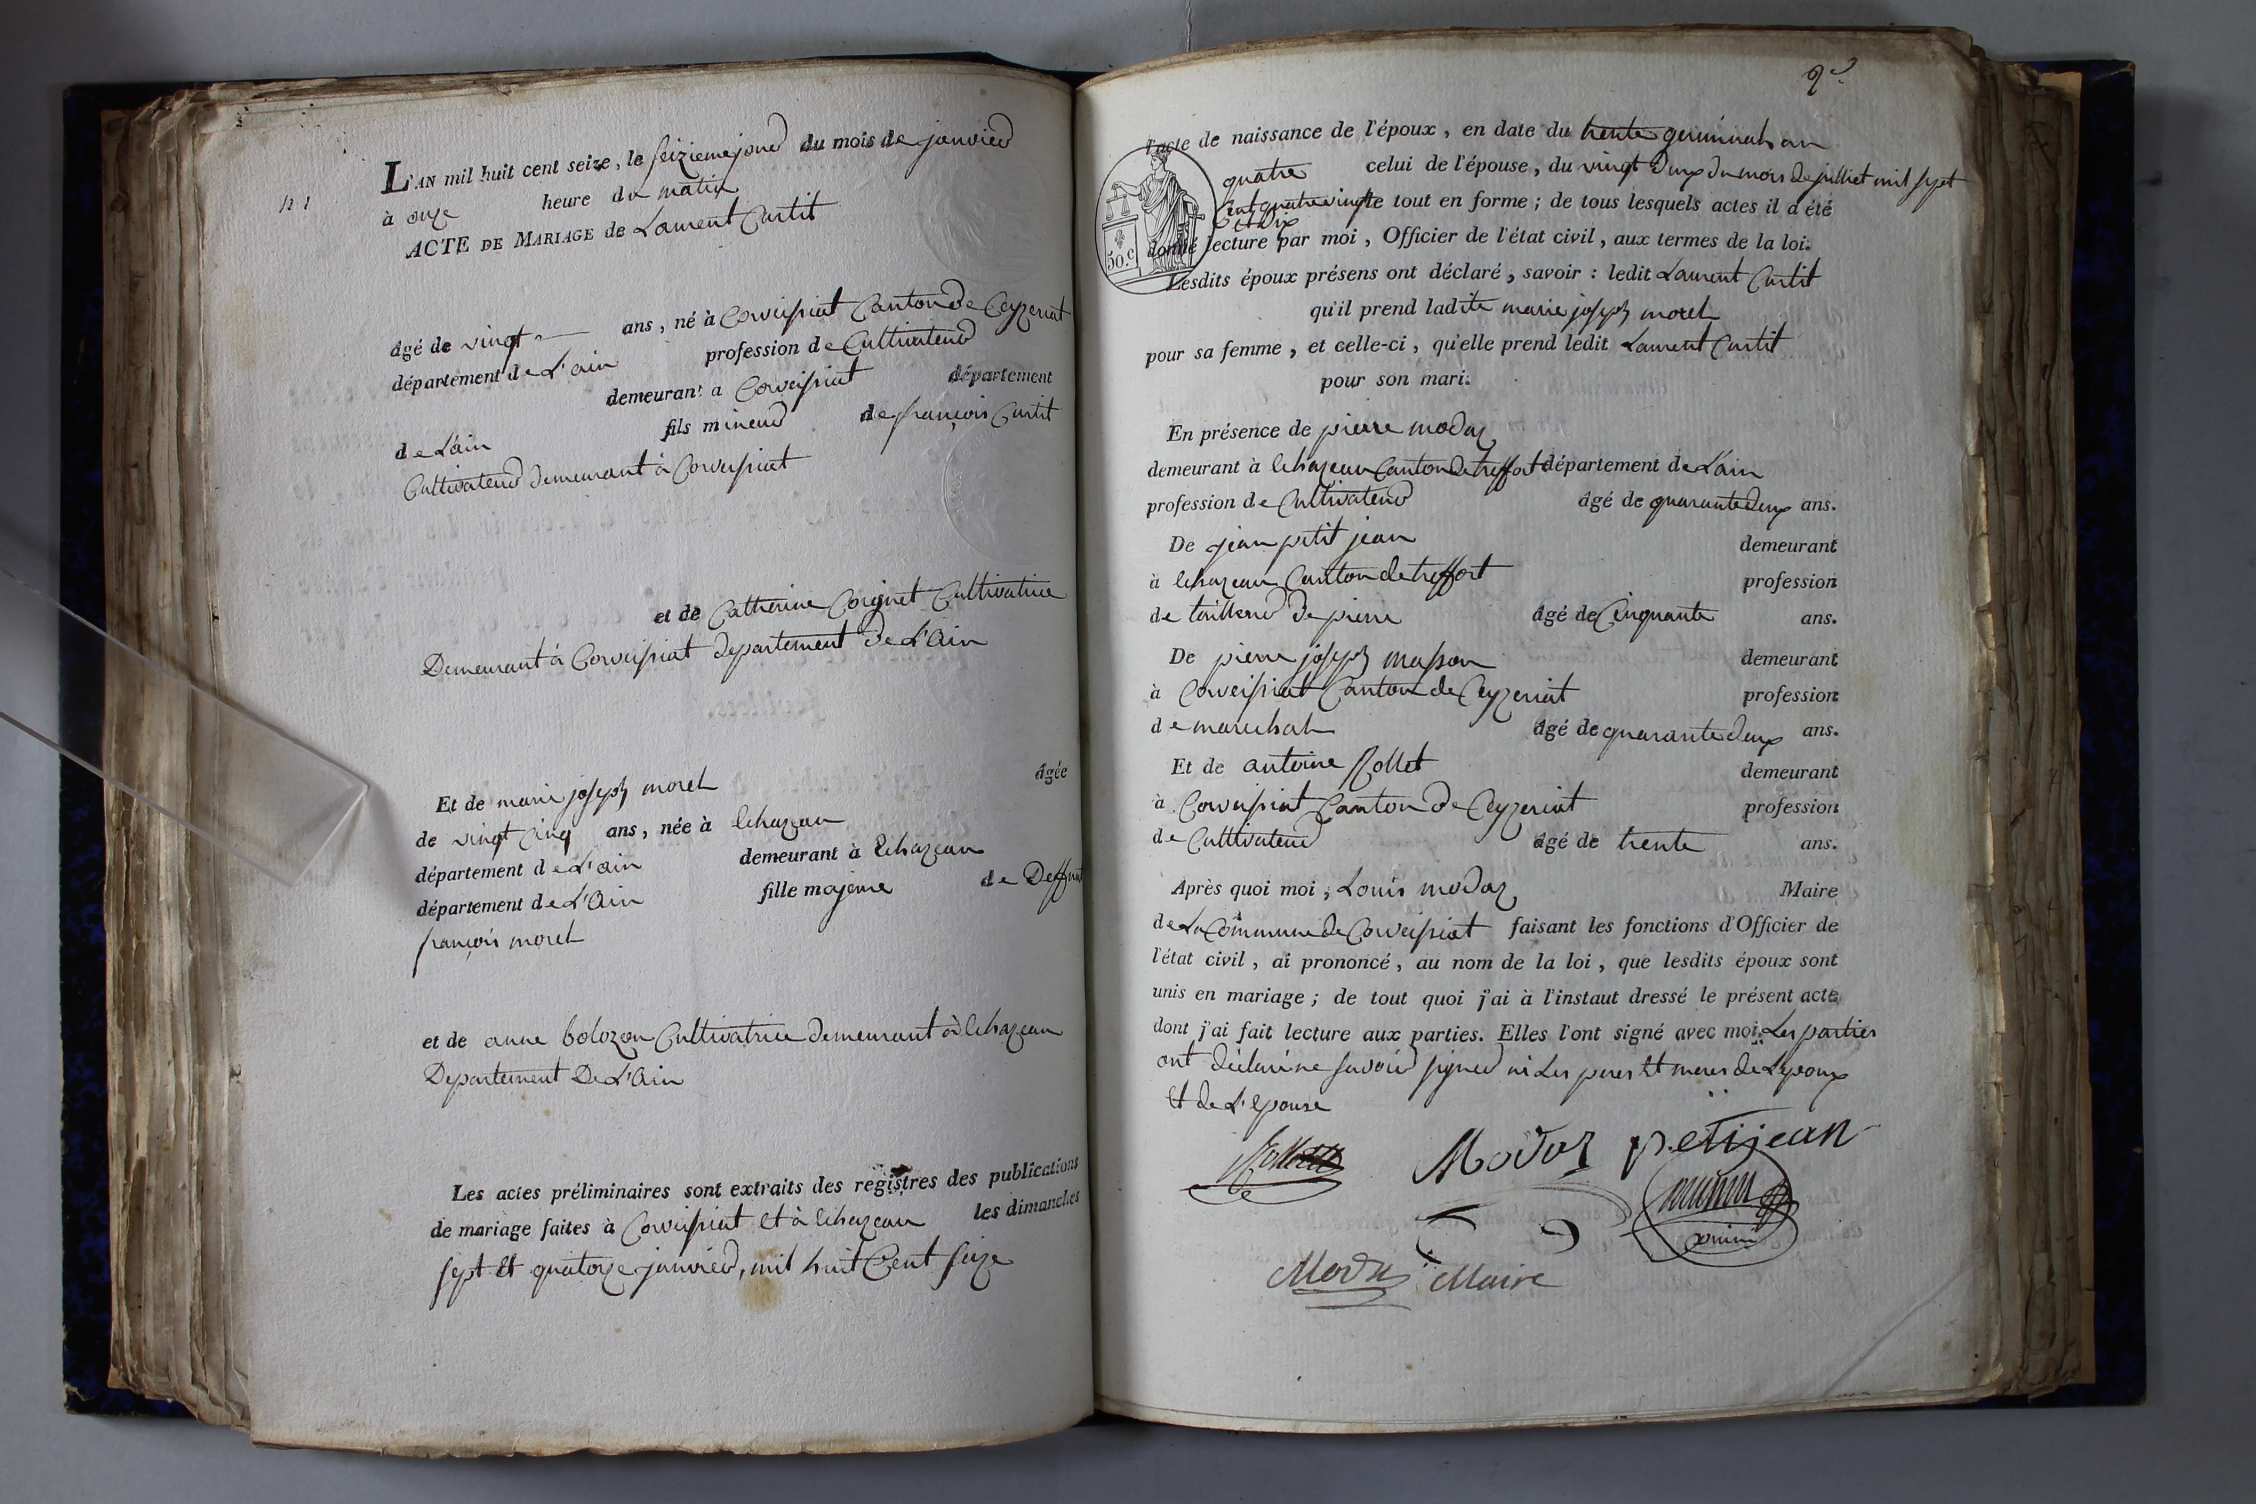 n 1
L'AN mil huit cent seize, le seizieme jour du mois de janvier
à onze heure du matin
ACTE DE MARIAGE de Laurent Curtit
âgé de vingt ans, né à Corveissiat Canton de Ceyzeriat
département de L'ain profession de Cultivateur
demeurant a Corveissiat département
de L'ain fils mineur de françois Curtit
Cultivateur demeurant à Corveissiat
et de Catherine Coignet Cultivatrice
Demeurant à Corveissiat departement de L'Ain
Et de marie joseph morel âgée
de vingt cinq ans, née à lehazeau
département de L'ain demeurant à lehazeau
département de L'Ain fille majeure de Deffunt
françois morel
et de anne bolozon Cultivatrice demeurant à lehazeau
Departement De L'Ain
Les actes préliminaires sont extraits des registres des publications
de mariage faites à Corveissiat et à lehazeau les dimanches
sept et quatorze janvier, mil huit Cent seize
2
l'acte de naissance de l'époux, en date du trente germinal an
quatre celui de l'épouse, du vingt deux du mois de juilliet mil sept
Cent quatre vingt le tout en forme; de tous lesquels actes il a été
et dix
donné lecture par moi, Officier de l'état civil, aux termes de la loi.
50.c
Lesdits époux présens ont déclaré, savoir: ledit Laurent Curtit
qu'il prend ladite marie joseph morel
pour sa femme, et celle-ci, qu'elle prend ledit Laurent Curtit
pour son mari.
En présence de pierre modas
demeurant à lehazeau Canton de treffort département de L'ain
profession de Cultivateur âgé de quarante deux ans.
De jean petit jean demeurant
à lehazeau Canton de treffort profession
de tailleur de pierre âgé de Cinquante ans.
De pierre joseph masson demeurant
à Corveissiat Canton de Ceyzeriat profession
de marechal âgé de quarante deux ans.
Et de antoine Rollet demeurant
à Corveissiat Canton de Ceyzeriat profession
de Cultivateur âgé de trente ans.
Après quoi moi, Louis modas Maire
de La Commune de Corveissiat faisant les fonctions d'Officier de
l'état civil, ai prononcé, au nom de la loi, que lesdits époux sont
unis en mariage; de tout quoi j'ai à l'instaut dressé le présent acte
dont j'ai fait lecture aux parties. Elles l'ont signé avec moi. Les parties
ont déclaré ne savoir signer ni Les peres et meres de L'epoux
et de L'epouse
Modas petijean
Modas Maire